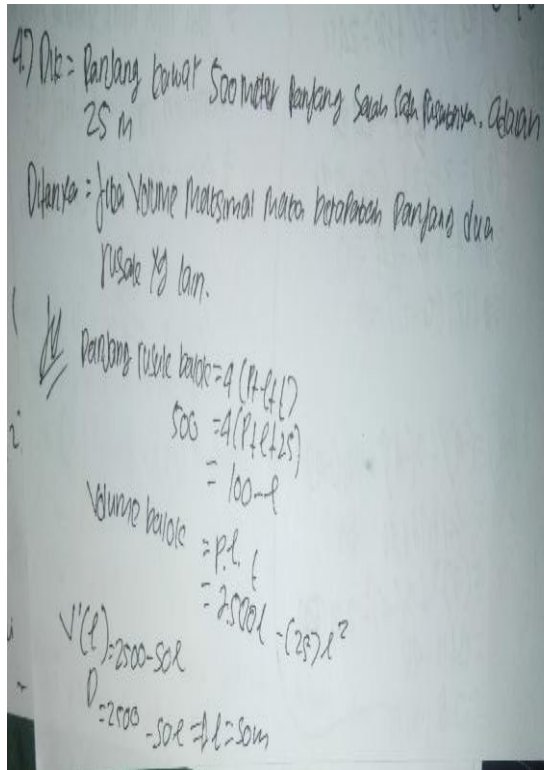 4.) Dik = Panjang kawat 500 meter panjang salah satu rusuknya, adalah
25 m
Ditanya = jika volume maksimal maka berapakah panjang dua
rusuk yg lain.
Panjang rusuk balok = 4 (P+l+t)
500 = 4(P+l+25)
= 100-l
Volume balok = p.l.t
= 2.500l - (25)l²
V'(l) = 2500-50l
0 = 2500 - 50l = l = 50m